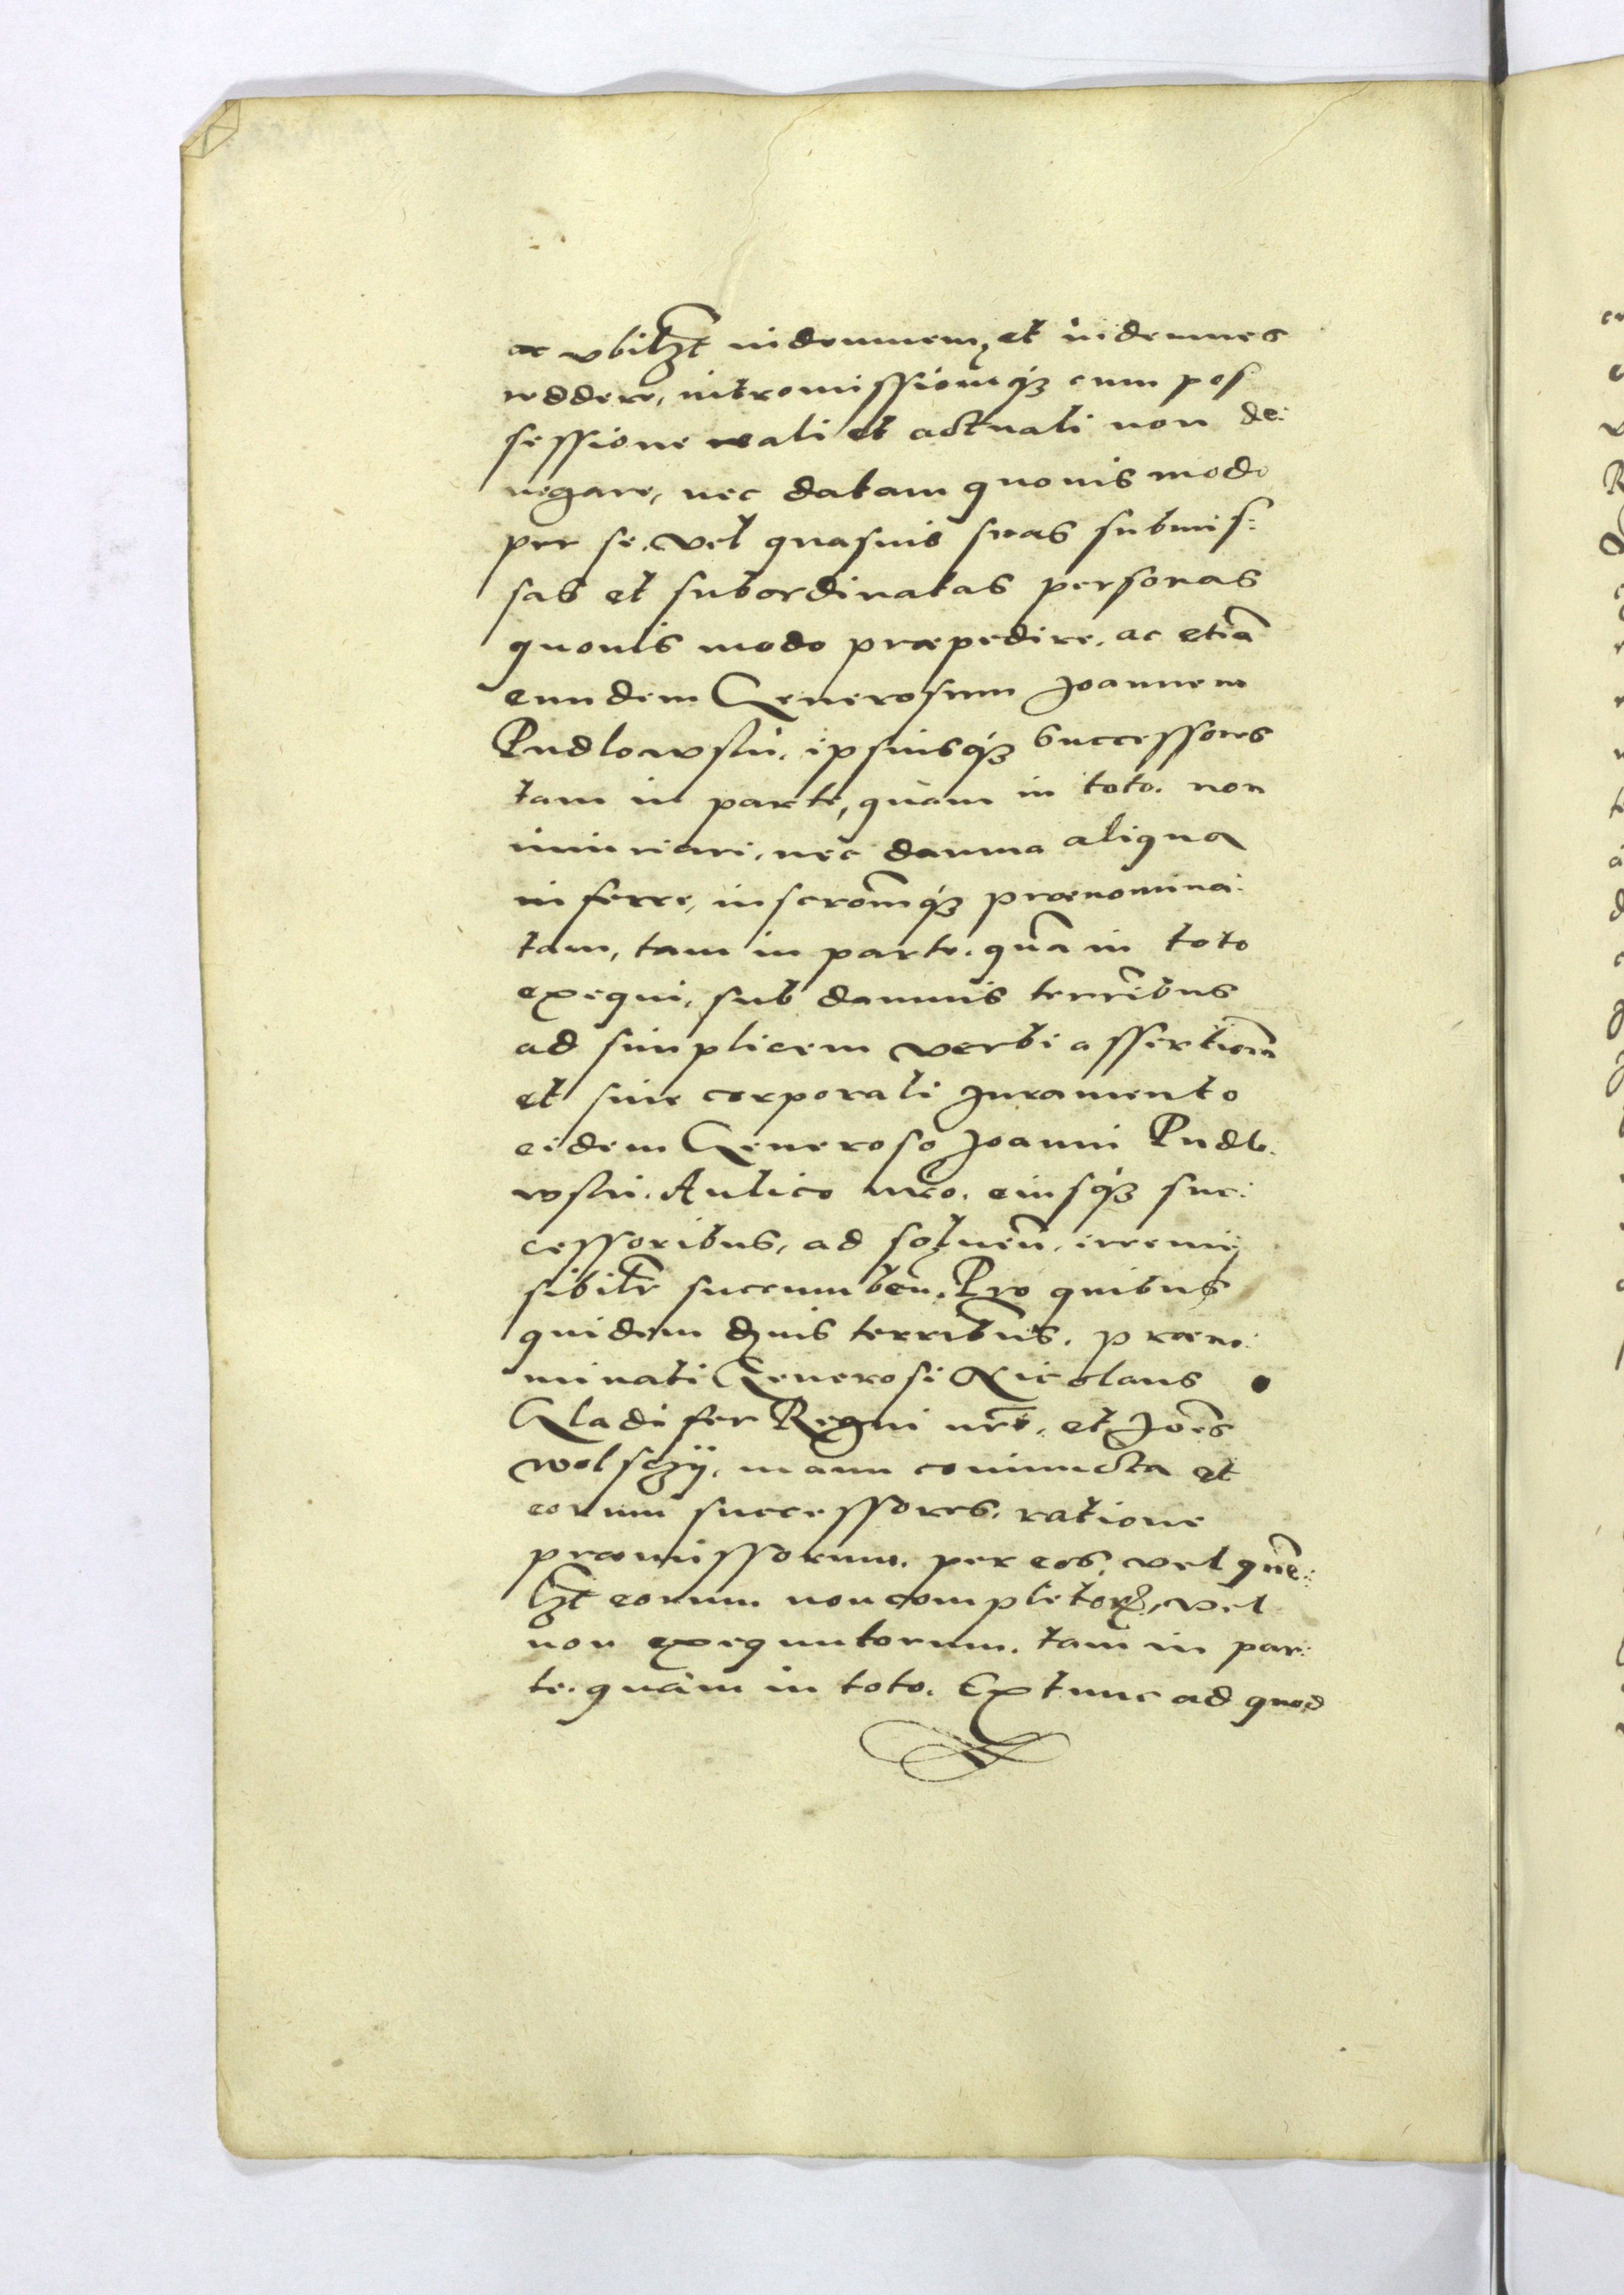 ac vbilʒt indemnem, et indemnes
reddere, intromissionēqʒ cum pos
sessione reali et actuali non de:
negare, nec datam quouis modo
per se. vel quasuis suas submis:
sas et subordinatas personas
quouis modo præpedire. ac etiā
eundem Generosum Joannem
Pudlowski. ipsiusqʒ successores
tam in parte, quàm in toto. non
iniuriari, nec damna aliqua
inferre, inscrōmqʒ prænomina:
tam, tam in parte. quā in toto
exequi, sub damnis terrībus
ad simplicem verbi assertionē
et sine corporali Juramento
eidem Generoso Joanni Pudlo:
wski. Aulico nr̄o. eiusqʒ suc:
cessoribus, ad soluēn. irremis
sibilr̄ succumbēn. Pro quibus
quidem dnis terrībus. præno:
minati Generosi Nicolaus
Gladifer Regni nr̄i. et Joēs
Wolsczÿ. manu coniuncta et
eorum successores. ratione
præmissorum. per eos. vel quē:
lʒt eorum non completorꝝ, vel
non exequutorum. tam in par:
te. quàm in toto. Extunc ad quod